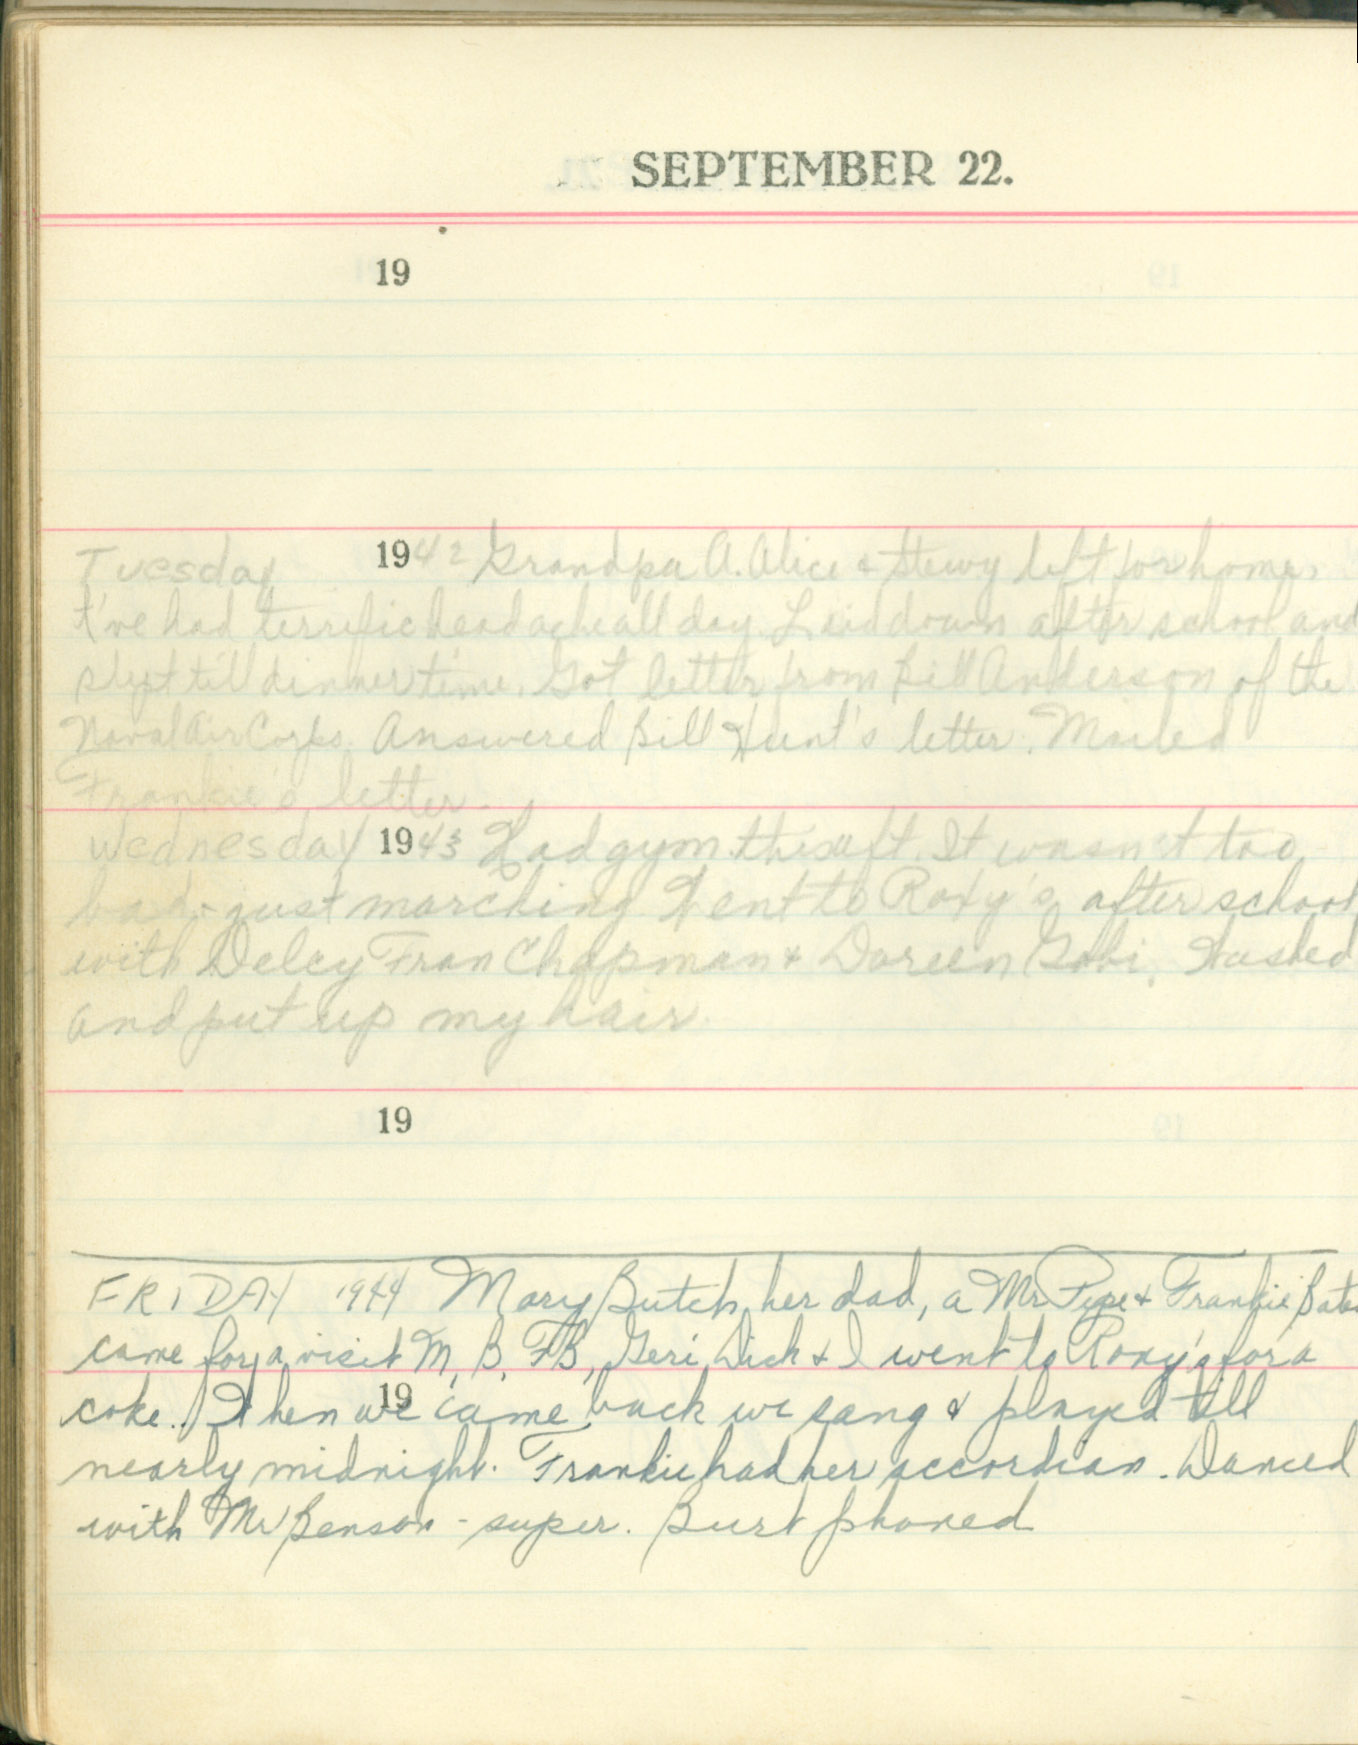 SEPTEMBER 22.
19
Tuesday 1942 Grandpa A. Alice & Stewy left for home.
I've had terrific headache all day. Laid down after school and
slept till dinner time. Got letter from Bill Anderson of the
Naval Air Corps. Answered Bill Hunt's letter. Mailed
Frankie's letter.
Wednesday 1943 Had gym this aft. It wasn't too
bad - just marching. Went to Roxy's after school
with Delcy Fran Chapman & Doreen Gobi. Washed
and put up my hair.
19
FRIDAY 1944 Mary Butch, her dad, a Mr. Pipe & Frankie
came for a visit M, B, FB, Geri, Dick & I went to Roxy's for a
coke. When we came back we sang & played till
19
nearly midnight. Frankie had her accordian. Danced
with Mr Benson - super. Burt phoned